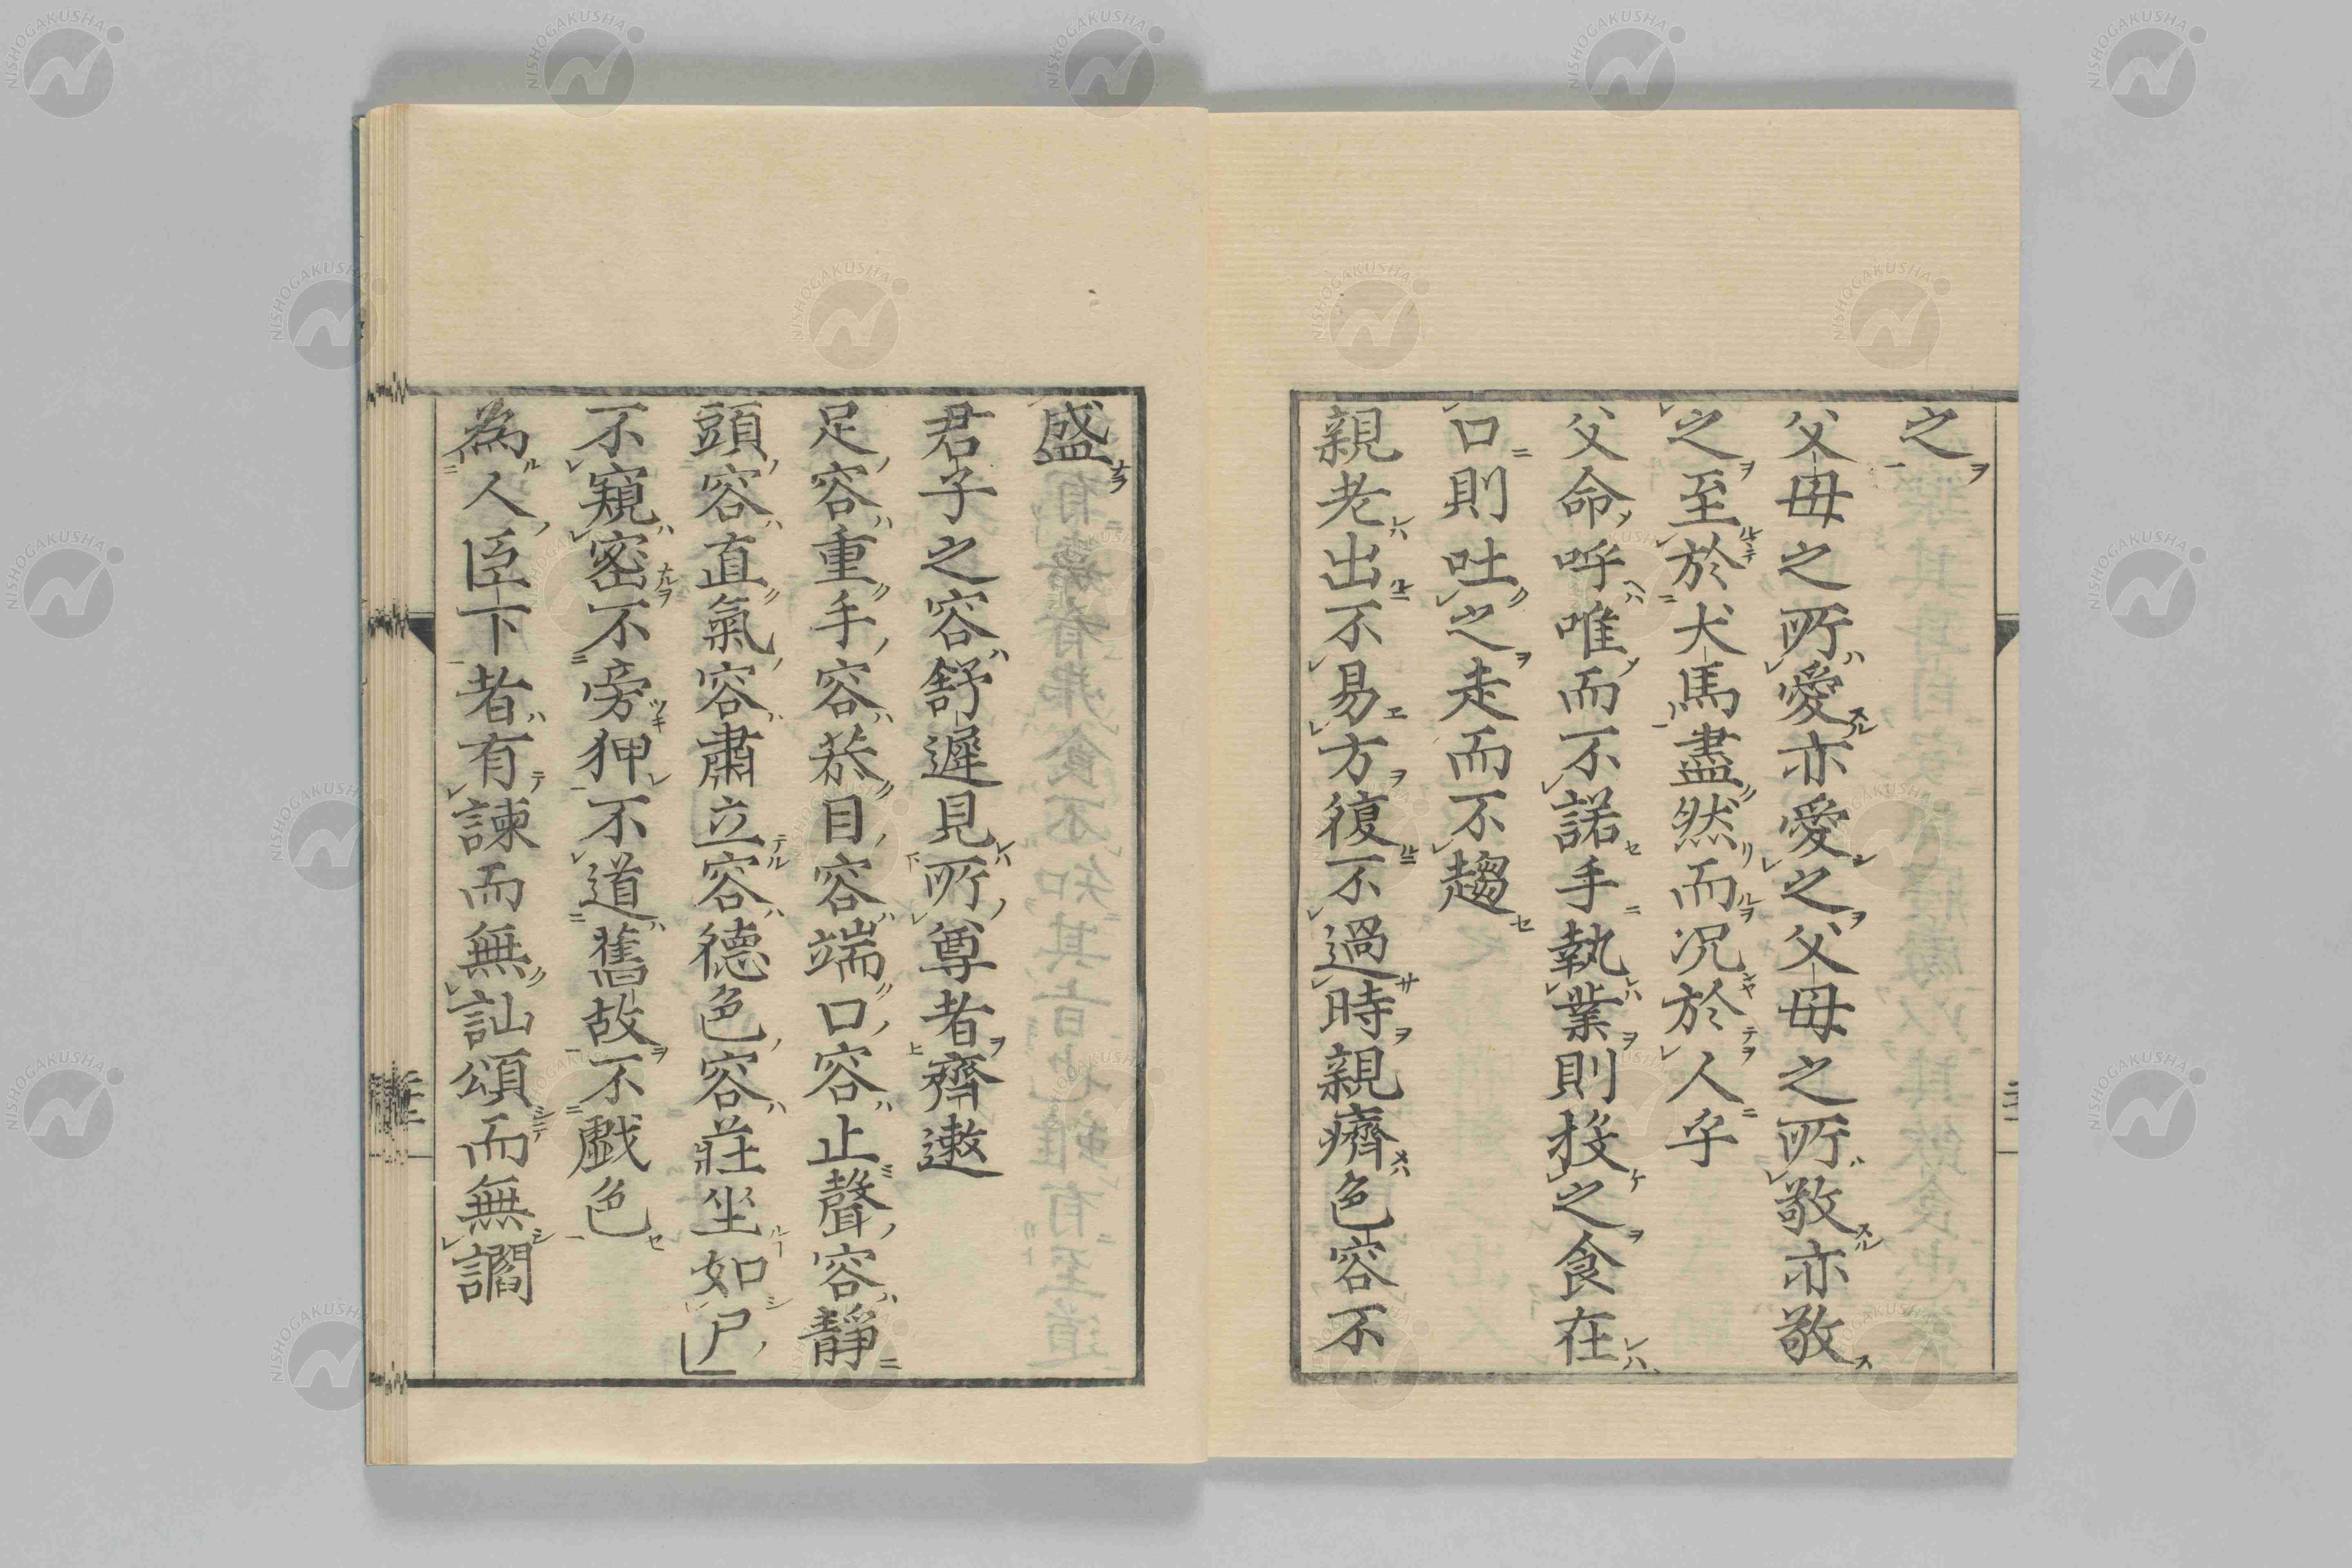 之
父母之所愛亦愛之父母之所敬亦敬
之至於犬馬盡然而况於人乎
父命呼唯而不諾手執業則投之食在
口則吐之走而不趨
親老出不易方復不過時親癠色容不
盛
君子之容舒遲見所尊者齊遫
足容重手容恭目容端口容止聲容靜
頭容直氣容肅立容德色容莊坐如尸
不窺密不旁狎不道舊故不戯色
為人臣下者有諫而無訕頌而無讇